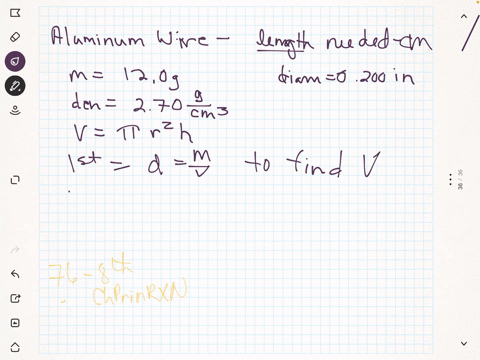 Aluminum Wire - length needed-cm
m = 12.0g diam=0.200 in
den = 2.70 g/cm3
V = π r2 h
1st = d = m/V to find V
76 - 8th
ChPrinRXN
36 / 36